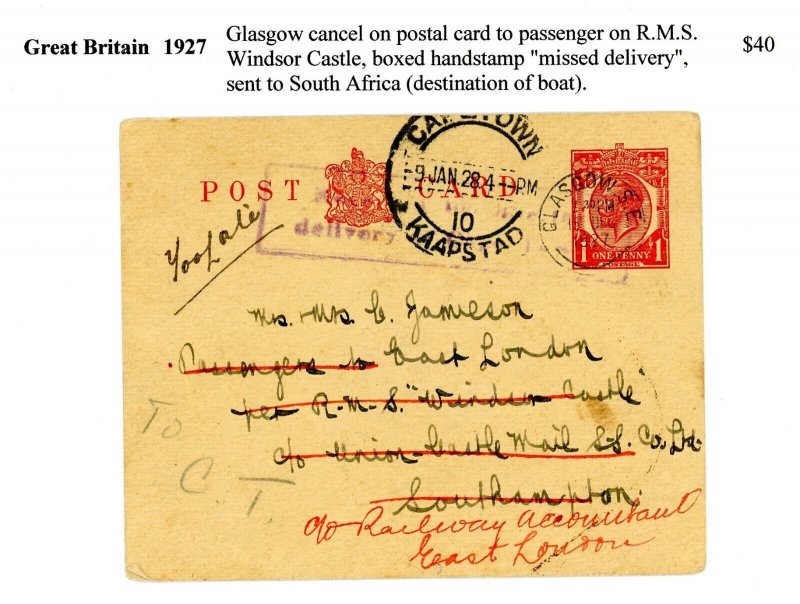 Great Britain 1927
Glasgow cancel on postal card to passenger on R.M.S.
Windsor Castle, boxed handstamp "missed delivery",
sent to South Africa (destination of boat).
$40
POST CARD
CAPETOWN
9 JAN 28 4 - PM
10
KAAPSTAD
GLASGOW
1927
1 ONE PENNY 1
POSTAGE
delivery
Too Late
Mr. & Mrs. C. Jamieson
Passengers to East London
per R.M.S. "Windsor Castle"
c/o Union-Castle Mail S.S. Co., Ltd.
Southampton.
To
C. T.
c/o Railway Accountant
East London